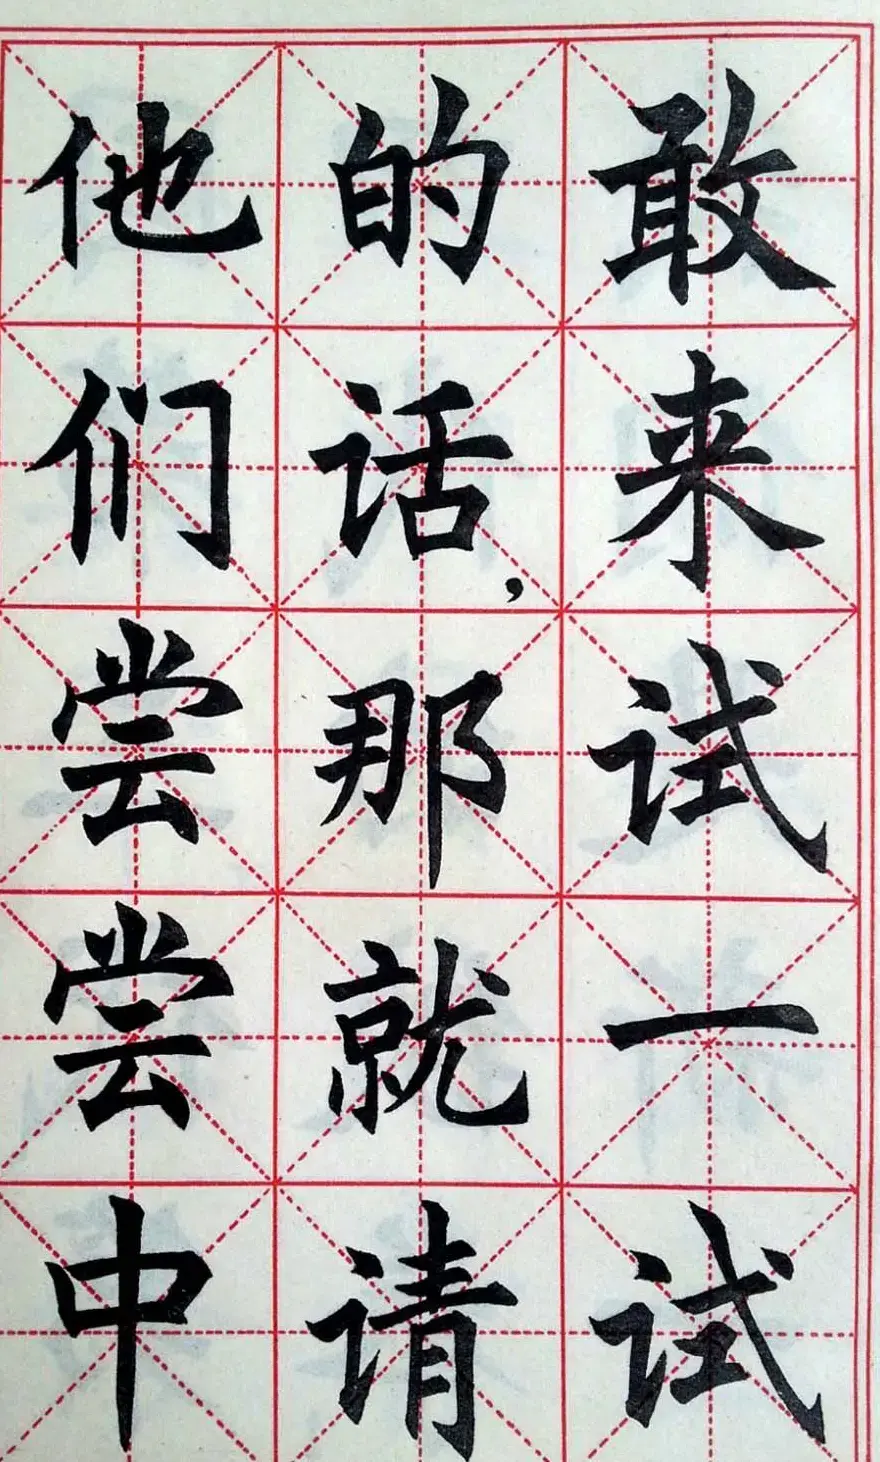 敢来试一试
的话，那就请
他们尝尝中